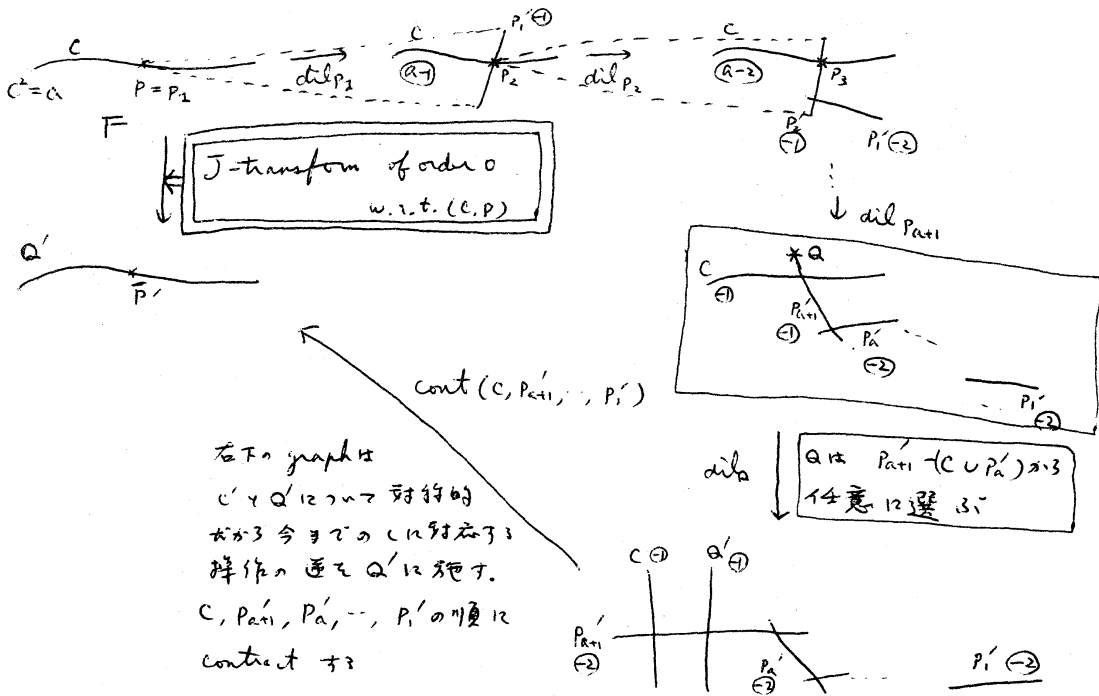 C
C² = a
P = P₁
dil P₁
C
(a-1)
P₁' (-1)
P₂
dil P₂
C
(a-2)
P₃
P₂' (-1)
P₁' (-2)
F
J-transform of order 0
w.r.t. (C, P)
Q'
P'
dil Pₐ₊₁
C (-1)
Q
P'ₐ₊₁ (-1)
P'ₐ (-2)
P₁' (-2)
cont (C, P'ₐ₊₁, ‥, P₁')
dil Q
Qは P'ₐ₊₁-(C∪P'ₐ)から
任意に選ぶ
右下の graphは
C'とQ'について対称的
だから今までのCに対応する
操作の逆をQ'に施す.
C, P'ₐ₊₁, P'ₐ, ‥, P₁'の順に
contractする
C (-1)
Q' (-1)
Pₐ₊₁' (-2)
Pₐ' (-2)
P₁' (-2)